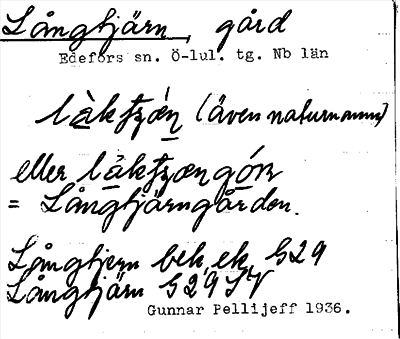 Långtjärn, gård
Edefors sn. Ö-lul. tg. Nb län
(även naturnamn)
eller
= Långtjärngården.
Långtjern bek, ek, 529
Långtjärn
Gunnar Pellijeff 1936.